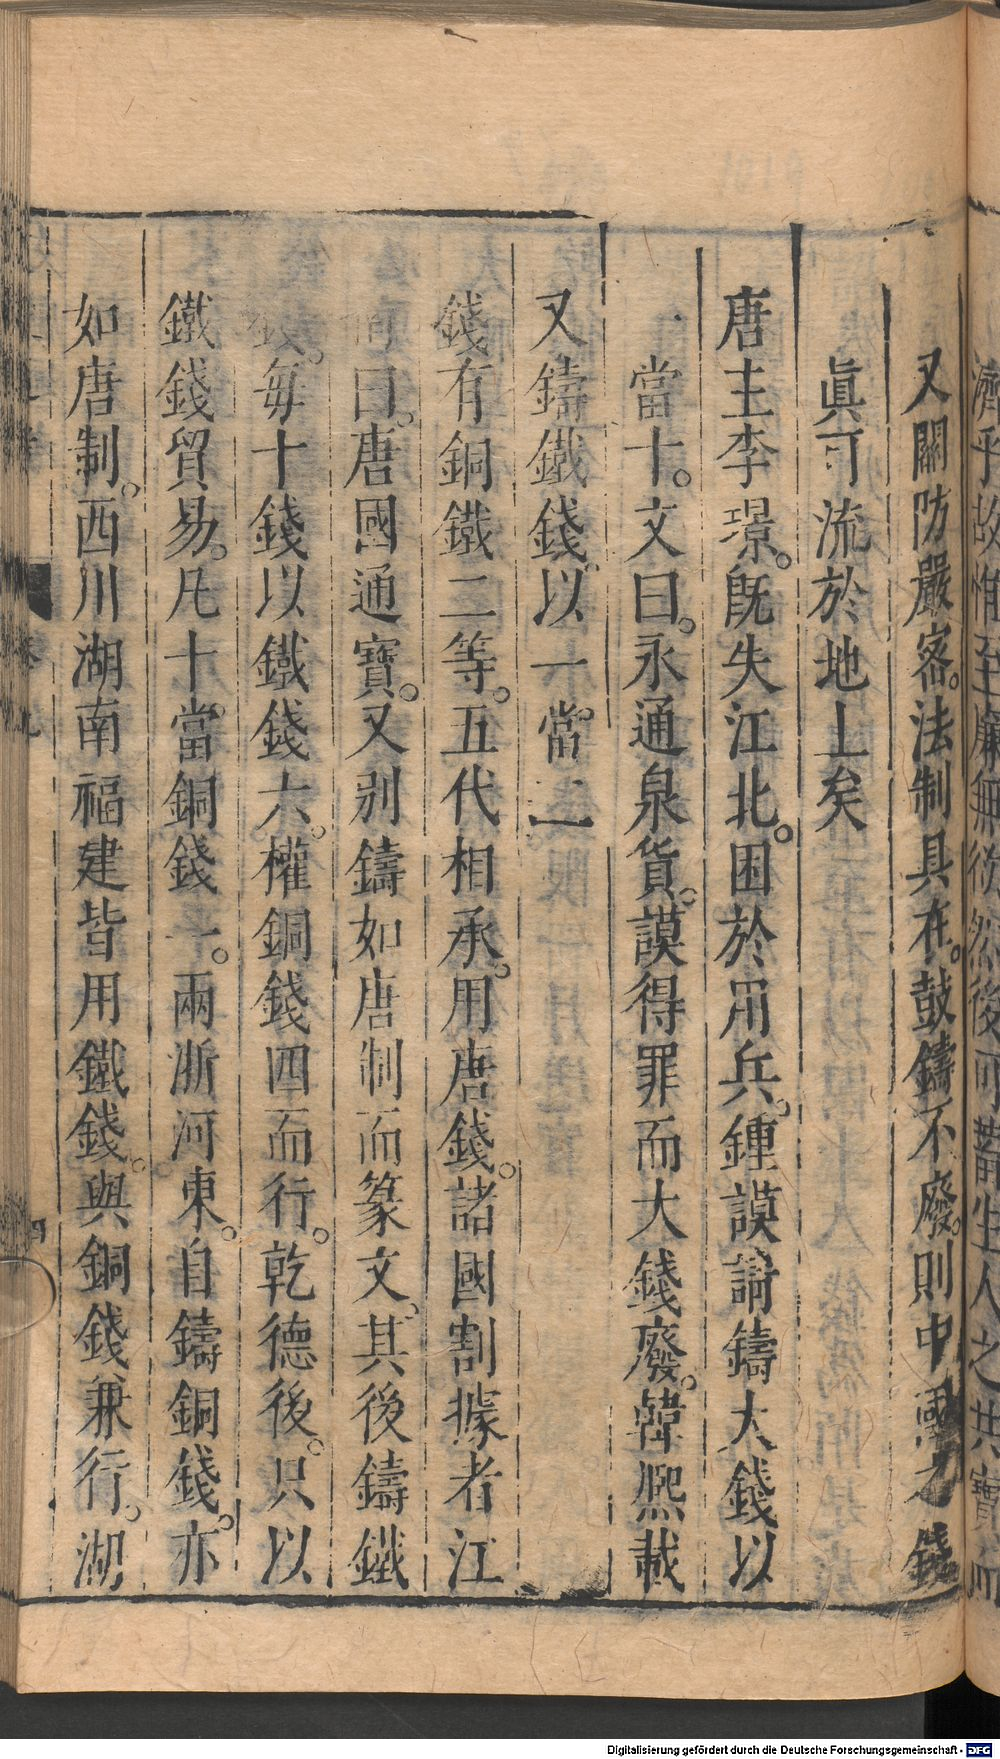 又關防嚴密。法制具在。鼓鑄不廢。則中國之錢
眞可流於地上矣
唐主李璟。旣失江北。困於用兵。鍾謨請鑄大錢以
一當十。文曰。永通泉貨。謨得罪而大錢廢。韓熙載
又鑄鐵錢。以一當二
錢有銅鐵二等。五代相承。用唐錢。諸國割據者江
南曰。唐國通寶。又別鑄如唐制而篆文。其後鑄鐵
錢。每十錢以鐵錢六。權銅錢四而行。乾德後。只以
鐵錢貿易。凡十當銅錢一。兩浙河東。自鑄銅錢。亦
如唐制。西川湖南福建皆用鐵錢。與銅錢兼行。湖
四
Digitalisierung gefördert durch die Deutsche Forschungsgemeinschaft - DFG